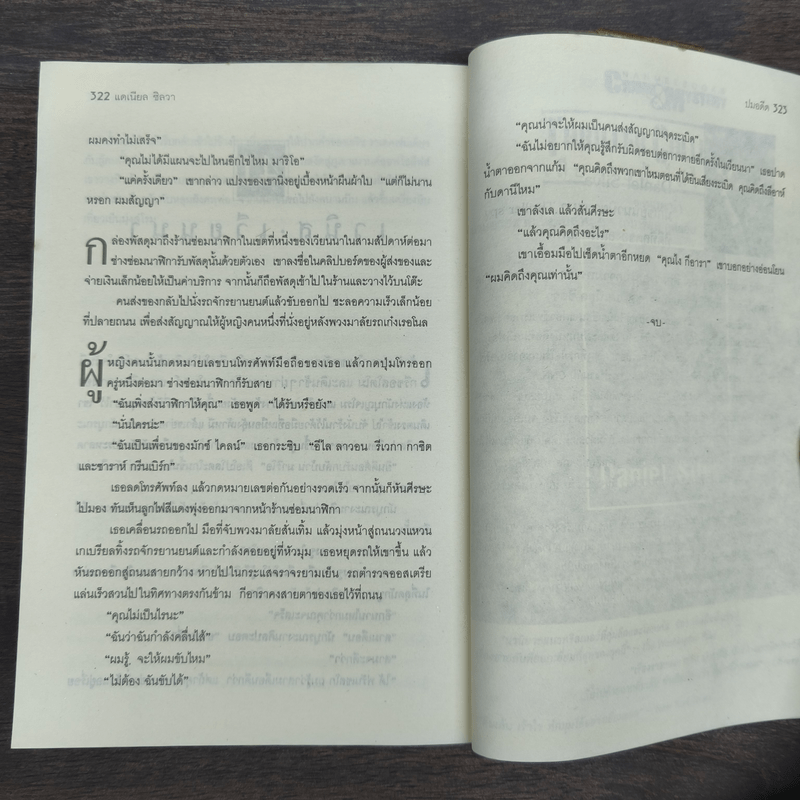 322 แดเนียล ซิลวา
ผมคงทำไม่เสร็จ"
"คุณไม่ได้มีแผนจะไปไหนอีกใช่ไหม มาริโอ"
"แค่ครั้งเดียว" เขากล่าว แปรงของเขานิ่งอยู่เบื้องหน้าผืนผ้าใบ "แต่ก็ไม่นาน
หรอก ผมสัญญา"
กล่องพัสดุมาถึงร้านซ่อมนาฬิกาในเขตที่หนึ่งของเวียนนาในสามสัปดาห์ต่อมา
ช่างซ่อมนาฬิการับพัสดุนั้นด้วยตัวเอง เขาลงชื่อในคลิปบอร์ดของผู้ส่งของและ
จ่ายเงินเล็กน้อยให้เป็นค่าบริการ จากนั้นก็ถือพัสดุเข้าไปในร้านและวางไว้บนโต๊ะ
คนส่งของกลับไปนั่งรถจักรยานยนต์แล้วขับออกไป ชะลอความเร็วเล็กน้อย
ที่ปลายถนน เพื่อส่งสัญญาณให้ผู้หญิงคนหนึ่งที่นั่งอยู่หลังพวงมาลัยรถเก๋งเรอโนล
ผู้หญิงคนนั้นกดหมายเลขบนโทรศัพท์มือถือของเธอ แล้วกดปุ่มโทรออก
ครู่หนึ่งต่อมา ช่างซ่อมนาฬิกาก็รับสาย
"ฉันเพิ่งส่งนาฬิกาให้คุณ" เธอพูด "ได้รับหรือยัง"
"นั่นใครน่ะ"
"ฉันเป็นเพื่อนของมักซ์ ไคลน์" เธอกระซิบ "อีไล ลาวอน รีเวกา กาซิต
และซาราห์ กรีนเบิร์ก"
เธอลดโทรศัพท์ลง แล้วกดหมายเลขต่อกันอย่างรวดเร็ว จากนั้นก็หันศีรษะ
ไปมอง ทันเห็นลูกไฟสีแดงพุ่งออกมาจากหน้าร้านซ่อมนาฬิกา
เธอเคลื่อนรถออกไป มือที่จับพวงมาลัยสั่นเทิ้ม แล้วมุ่งหน้าสู่ถนนวงแหวน
เกเบรียลทิ้งรถจักรยานยนต์และกำลังคอยอยู่ที่หัวมุม เธอหยุดรถให้เขาขึ้น แล้ว
หันรถออกสู่ถนนสายกว้าง หายไปในกระแสจราจรยามเย็น รถตำรวจออสเตรีย
แล่นเร็วสวนไปในทิศทางตรงกันข้าม กีอาราคงสายตาของเธอไว้ที่ถนน
"คุณไม่เป็นไรนะ"
"ฉันว่าฉันกำลังคลื่นไส้"
"ผมรู้ จะให้ผมขับไหม"
"ไม่ต้อง ฉันขับได้"
ปมอดีต 323
"คุณน่าจะให้ผมเป็นคนส่งสัญญาณจุดระเบิด"
"ฉันไม่อยากให้คุณรู้สึกรับผิดชอบต่อการตายอีกครั้งในเวียนนา" เธอปาด
น้ำตาออกจากแก้ม "คุณคิดถึงพวกเขาไหมตอนที่ได้ยินเสียงระเบิด คุณคิดถึงลีอาห์
กับดานีไหม"
เขาลังเล แล้วสั่นศีรษะ
"แล้วคุณคิดถึงอะไร"
เขาเอื้อมมือไปเช็ดน้ำตาอีกหยด "คุณไง กีอารา" เขาบอกอย่างอ่อนโยน
"ผมคิดถึงคุณเท่านั้น"
-จบ-